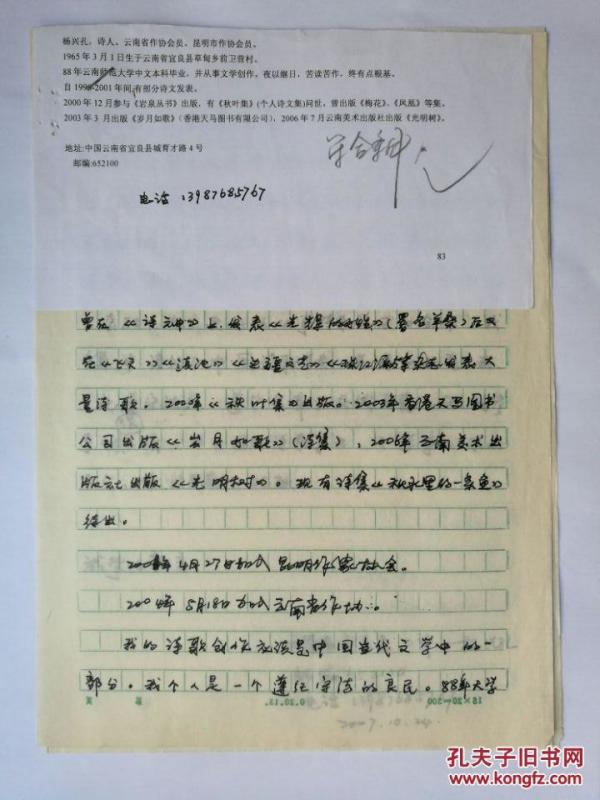 杨兴孔,诗人、云南省作协会员、昆明市作协会员。
1965年3月1日生于云南省宜良县草甸乡前卫营村。
88年云南师范大学中文本科毕业,并从事文学创作,夜以继日,苦读苦作,终有点根基。
自1990-2001年间,有部分诗文发表。
2000年12月参与《岩泉丛书》出版,有《秋叶集》(个人诗文集)问世,曾出版《梅花》、《凤凰》等集。
2003年3月出版《岁月如歌》(香港天马图书有限公司),2006年7月云南美术出版社出版《光明树》。
地址:中国云南省宜良县城育才路4号
邮编:652100
电话:13987685767
83
曾在《诗神》上发表《光辉的》(署名羊桑)后又
在《飞天》《滇池》《边疆文学》《珠江源》等杂志发表大
量诗歌。2000年《秋叶集》出版。2003年香港天马图书
公司出版《岁月如歌》(诗集),2006年云南美术出
版社出版《光明树》。现有诗集《秋水里的一条鱼》
待出。
年4月27日加入昆明作家协会。
2004年5月18日加入云南省作协。
我的诗歌创作应该是中国当代文学中的一
部分。我个人是一个遵纪守法的良民。88年大学
15×20=300
孔夫子旧书网
www.kongfz.com